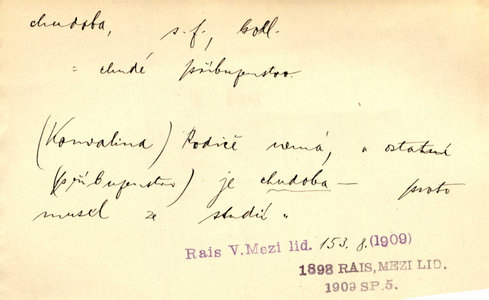 chudoba, s. f., koll.
= chudé příbuzenstvo.
(Konvalina) Rodiče nemá, a ostatní
(příbuzenstvo) je chudoba — proto
musel ze studií "
Rais V. Mezi lid. 153. 8. (1909)
1898 RAIS, MEZI LID.
1909 SP. 5.